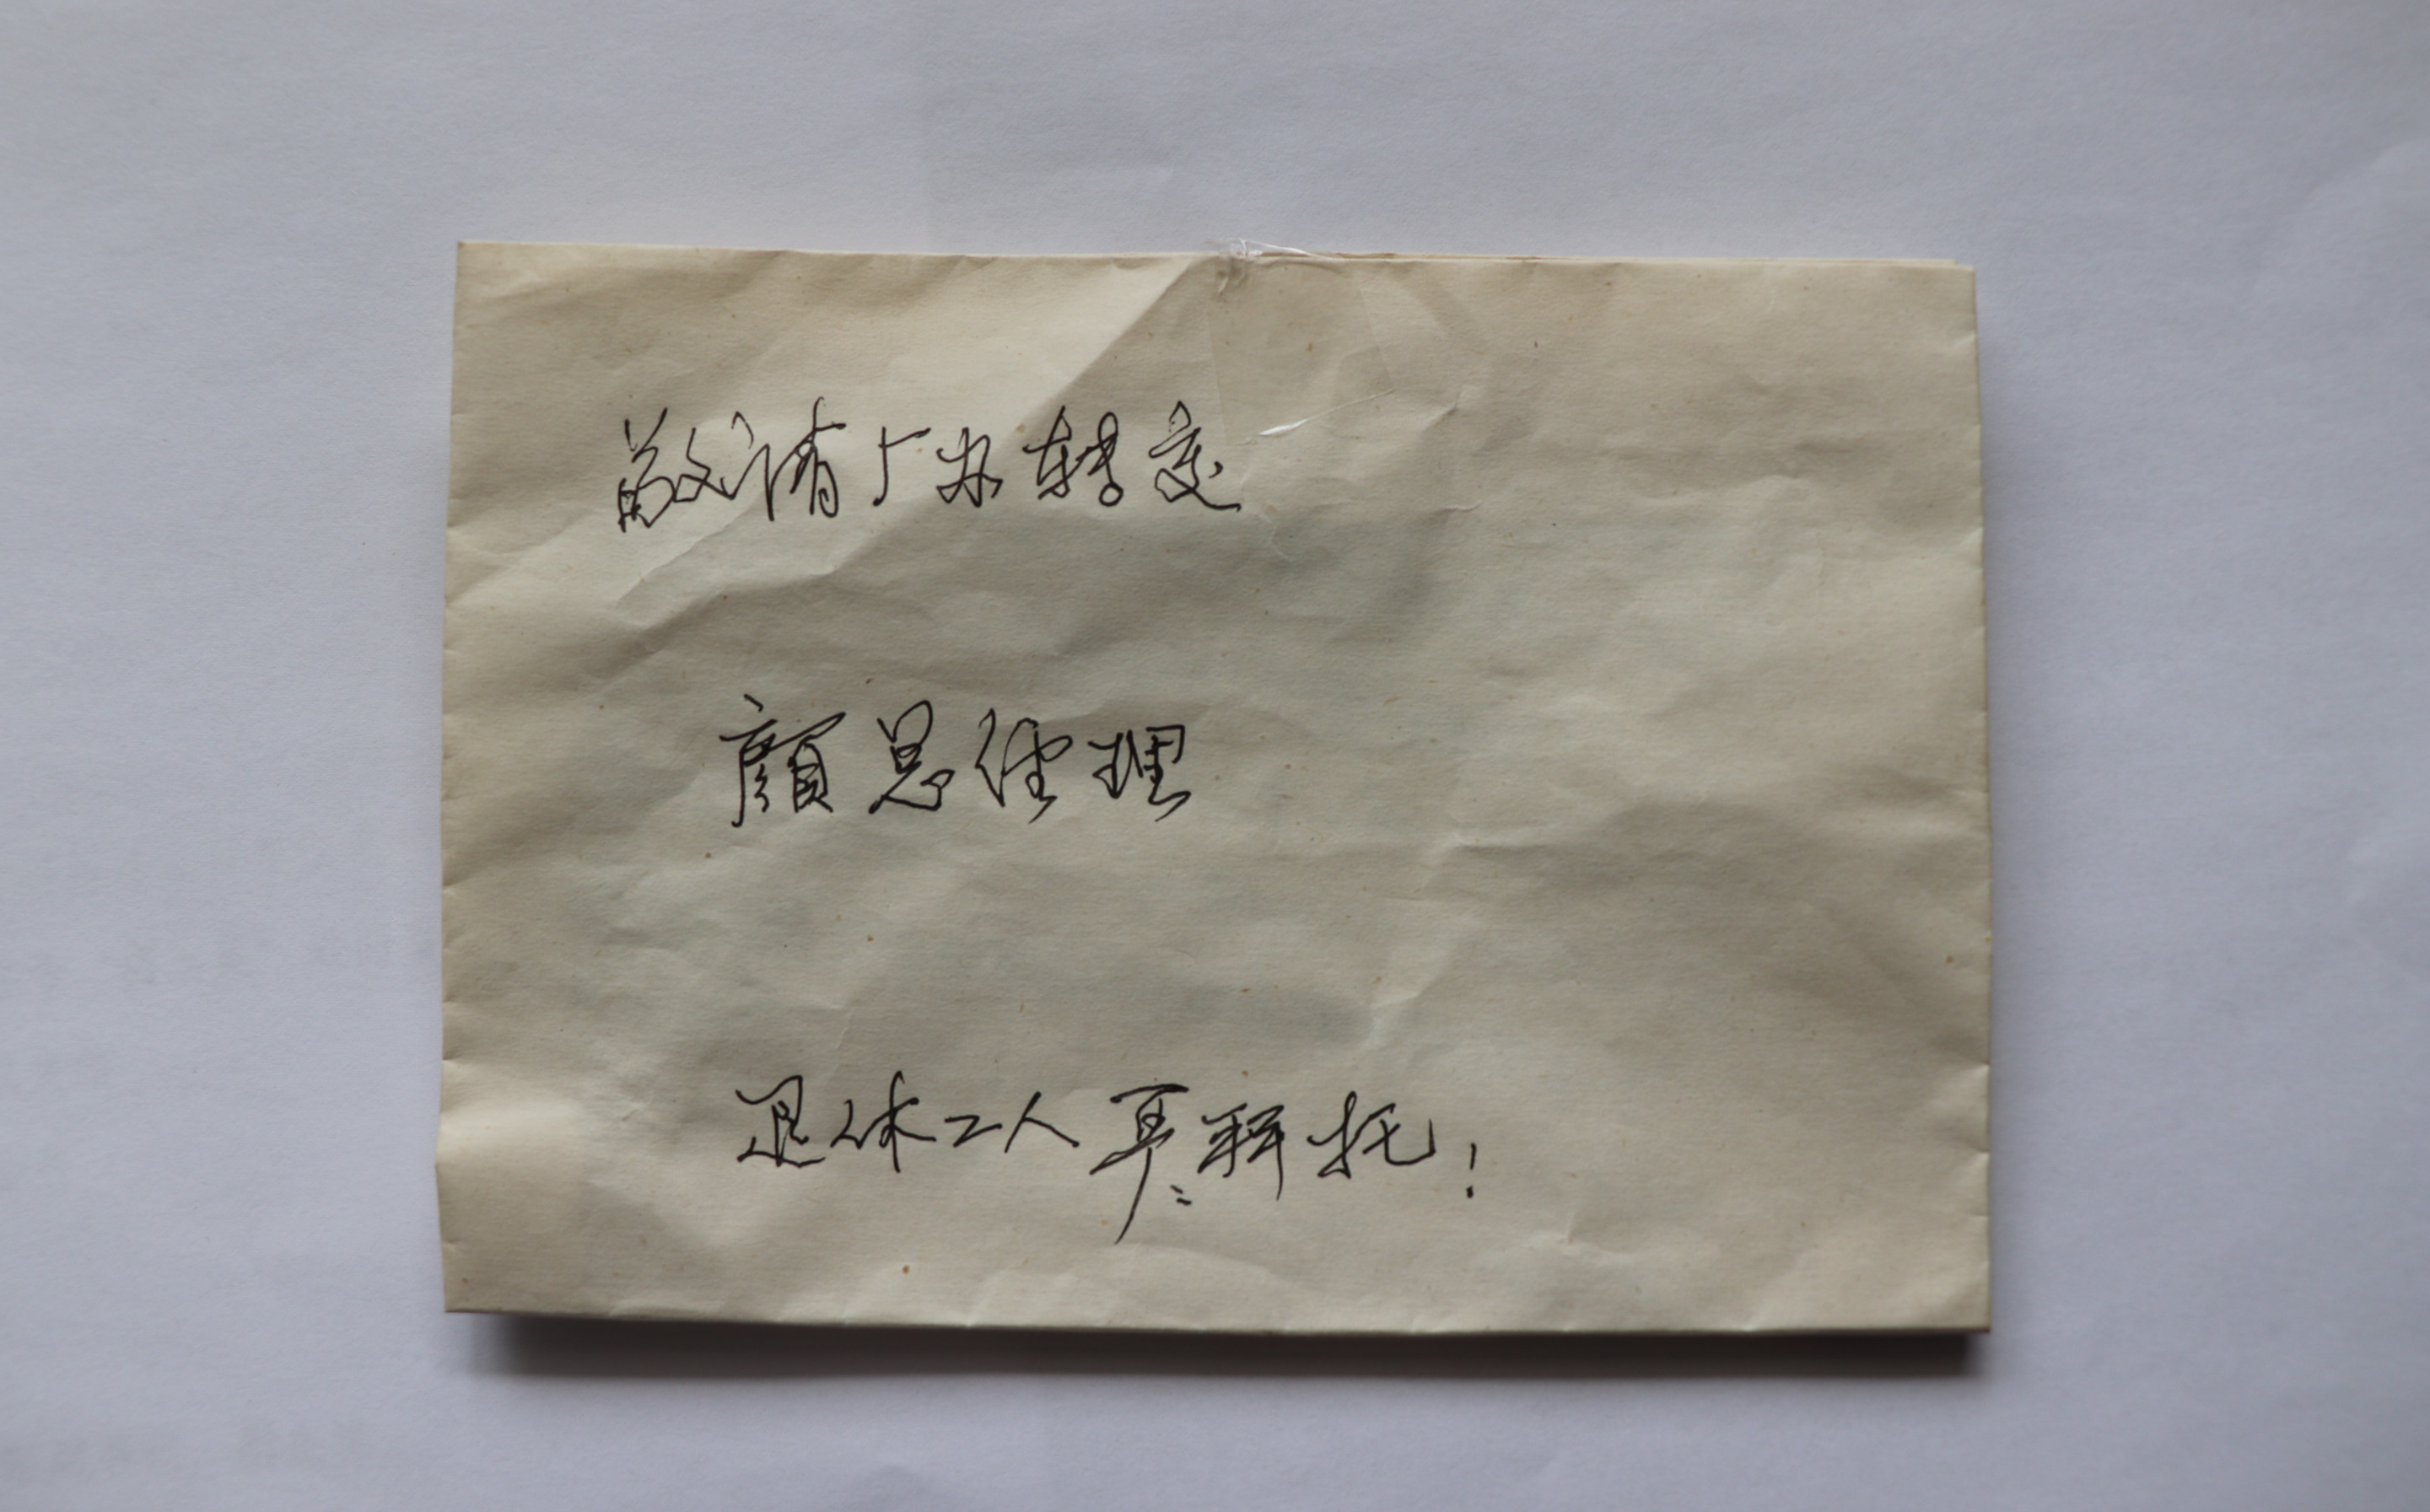 敬请厂办转交
顔总经理
退休工人 拜托!